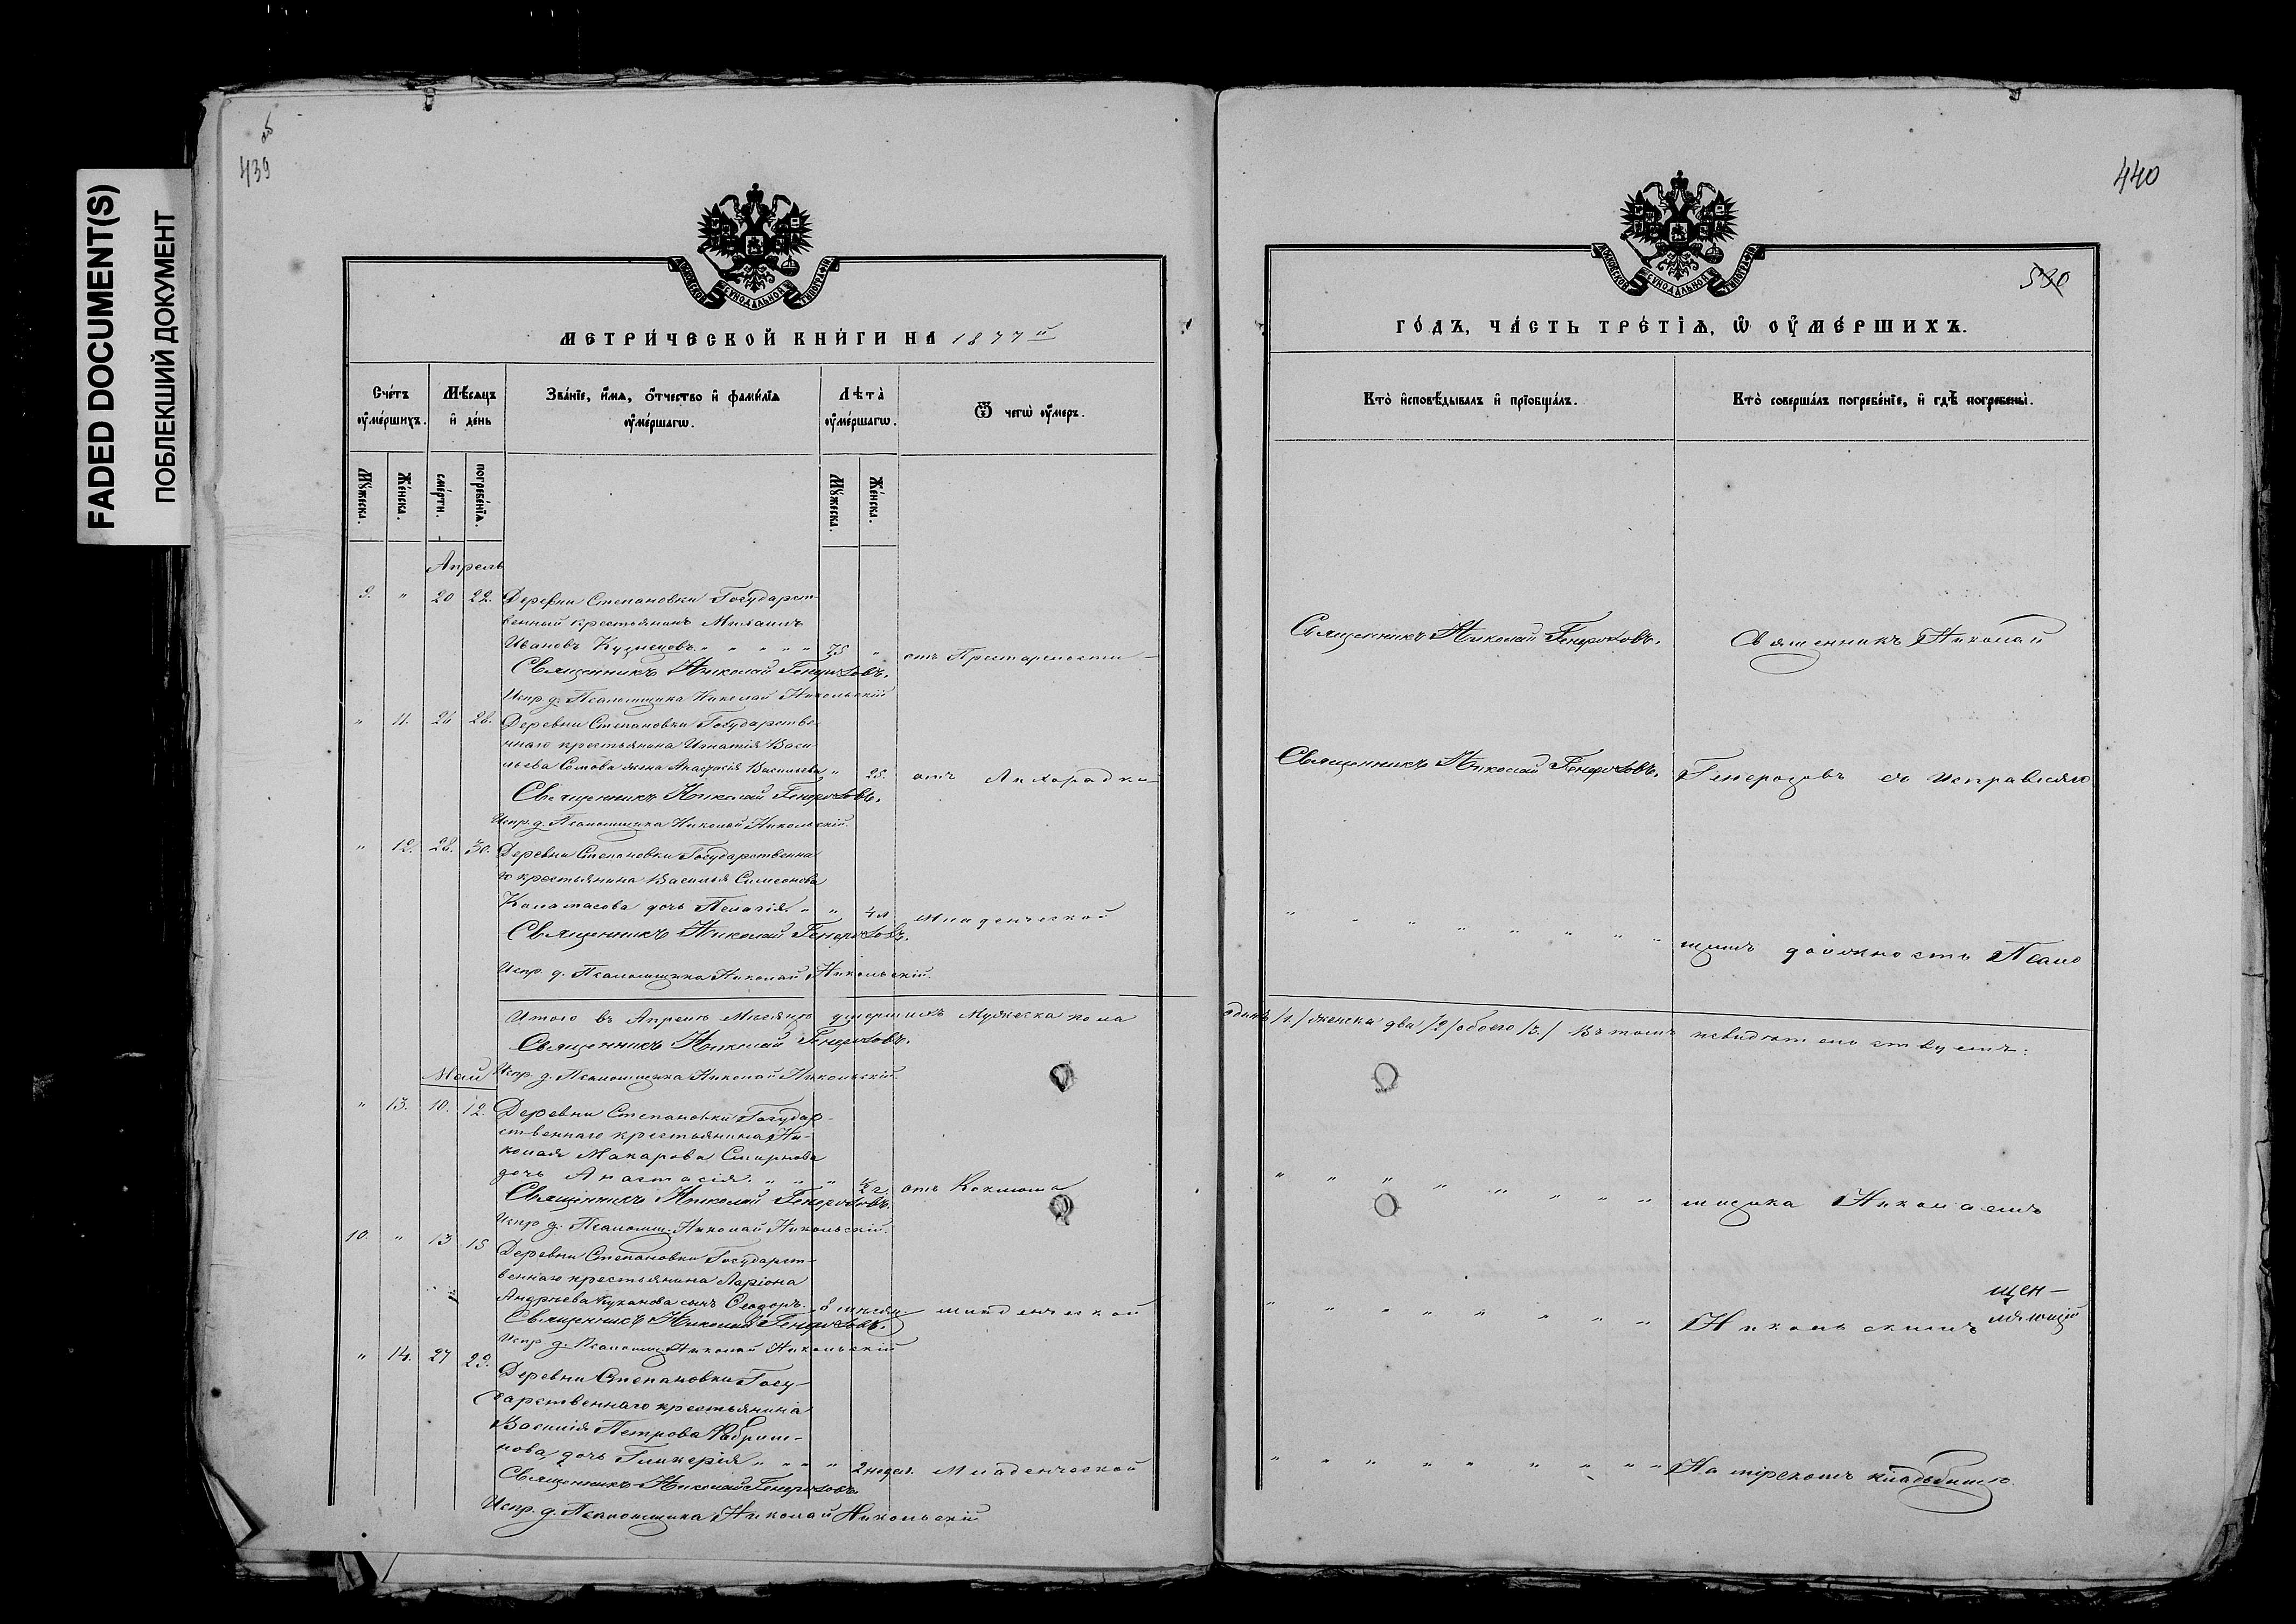 FADED DOCUMENT(S)
ПОБЛЕКШИЙ ДОКУМЕНТ
об
439
МОСКОВСКОЙ СѴНОДАЛЬНОЙ ТИПОГРАФІИ
МЕТРИ́ЧЕСКОЙ КНИ́ГИ НА 1877й
Сче́тъ ᲂу҆ме́ршихъ.
Мѣ́сяцъ и҆ де́нь
Зва́нїе, и҆́мя, ѻ҆́тчество и҆ фами́лїя ᲂу҆ме́ршагѡ.
Лѣ́та ᲂу҆ме́ршагѡ.
Ѿ чегѡ̀ ᲂу҆́меръ.
Мꙋ́жеска.
Же́нска.
сме́рти.
погребе́нїѧ.
Мꙋ́жеска.
Же́нска.
Апрель
9. " 20 22. Деревни Степановки Государст-
венный крестьянинъ Михаилъ
Ивановъ Кузнецовъ. " " " " " 75 " отъ Престарелости
Священникъ Николай Генерозовъ.
Испр. д. Псаломщика Николай Никольскій
" 11. 26 28. Деревни Степановки Государстве-
ннаго крестьянина Игнатія Васи-
льева Сомова жена Анастасія Васильева " 25. отъ Лихорадки
Священникъ Николай Генерозовъ.
Испр. д. Псаломщика Николай Никольскій.
" 12. 28. 30. Деревни Степановки Государственна
го крестьянина Василья Симеонова
дочь Пелагія. " " 4 л Младенческой
Священникъ Николай Генерозовъ.
Испр. д. Псаломщика Николай Никольскій.
Итого въ Апреле Месяце умершихъ Мужеска пола
Священникъ Николай Генерозовъ.
Испр. д. Псаломщика Николай Никольскій.
Май
" 13. 10. 12. Деревни Степановки Государ-
ственнаго крестьянина Ни-
колая Макарова Смирнова
дочь Анастасія. " " " ½ г. отъ Коклюша
Священникъ Николай Генерозовъ.
Испр д. Псаломщ. Николай Никольскій.
10. " 13 15 Деревни Степановки Государст-
веннаго крестьянина Ларіона
Андрѣева сынъ Ѳеодоръ. 8 месяц. младенческой
Священникъ Николай Генерозовъ.
Испр д. Псаломщ Николай Никольскій
" 14. 27 29. Деревни Степановки Госу-
дарственнаго крестьянина
Василія Петрова
дочь Гликерія. " " " " 2 недел. Младенческой
Священникъ Николай Генерозовъ
Испр. д. Псаломщика Николай Никольскій
440
530
МОСКОВСКОЙ СѴНОДАЛЬНОЙ ТИПОГРАФІИ
ГО́ДЪ, ЧА́СТЬ ТРЕ́ТЇѦ, Ѡ҆ ОУ҆МЕ́РШИХЪ.
Кто̀ и҆сповѣ́дывалъ и҆ прїѡбща́лъ.
Кто̀ соверша́лъ погребе́нїе, и҆ гдѣ̀ погребены̀.
Священникъ Николай Генерозовъ.
Священникъ Николай
Священникъ Николай Генерозовъ.
Генерозовъ съ исправляю
" " " " " " " " щимъ должность Псало
одинъ /1./ женска два /2/ обоего /3./ Въ томъ свидетельствуемъ:
" " " " " " " " мщика Николаемъ
щен-
ляющій
" " " " " " " " Никольскимъ
" " " " " " " " На мірскомъ кладбище.